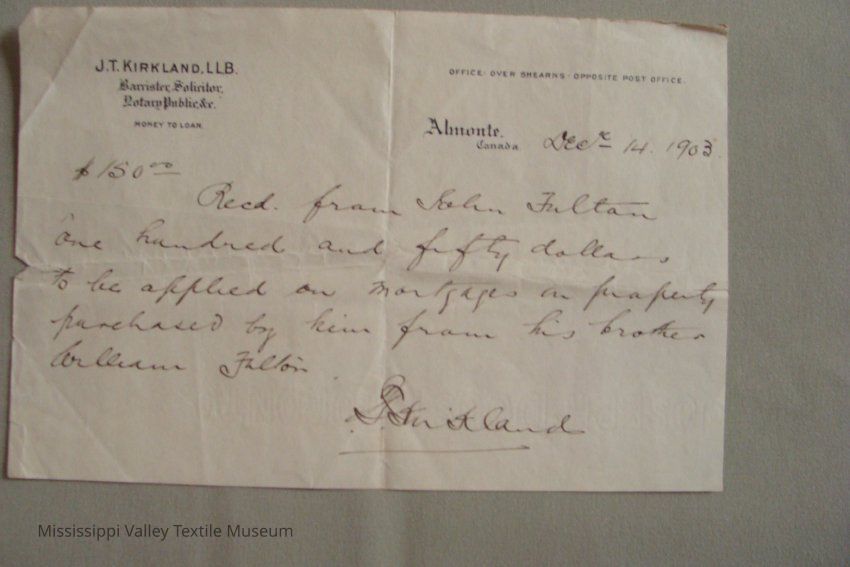 J.T. KIRKLAND, LLB.
Barrister, Solicitor,
Notary Public, &c.
MONEY TO LOAN.
OFFICE: OVER SHEARN'S - OPPOSITE POST OFFICE.
Almonte,
Canada Decr 14. 1903.
$150.00
Recd. from John Fulton
one hundred and fifty dollars
to be applied on mortgages on property
purchased by him from his brother
William Fulton.
J.T. Kirkland
Mississippi Valley Textile Museum